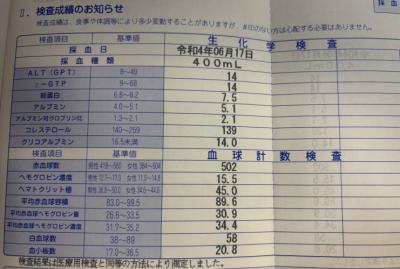 Ⅱ. 検査成績のお知らせ
検査成績は、食事や体調等により多少変動することがありますが、#印のない方は心配する必要はありません。
検査項目 基準値 生化学検査
採血日 令和04年06月17日
採血種類 400mL
ALT(GPT) 8~49 14
γ-GTP 9~68 14
総蛋白 6.6~8.2 7.5
アルブミン 4.0~5.1 5.1
アルブミン対グロブリン比 1.3~2.1 2.1
コレステロール 140~259 139
グリコアルブミン 16.5未満 14.0
検査項目 基準値 血球計数検査
赤血球数 男性 418~560 女性 384~504 502
ヘモグロビン濃度 男性 12.7~17.0 女性 11.0~14.8 15.5
ヘマトクリット値 男性 38.8~50.0 女性 34.6~44.6 45.0
平均赤血球容積 83.0~99.5 89.6
平均赤血球ヘモグロビン量 26.8~33.5 30.9
平均赤血球ヘモグロビン濃度 31.7~35.2 34.4
白血球数 38~89 58
血小板数 17.0~36.5 20.8
検査結果は医療用検査と同等の方法により測定しました。